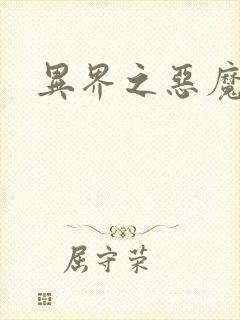 異界之惡魔
屈守荣